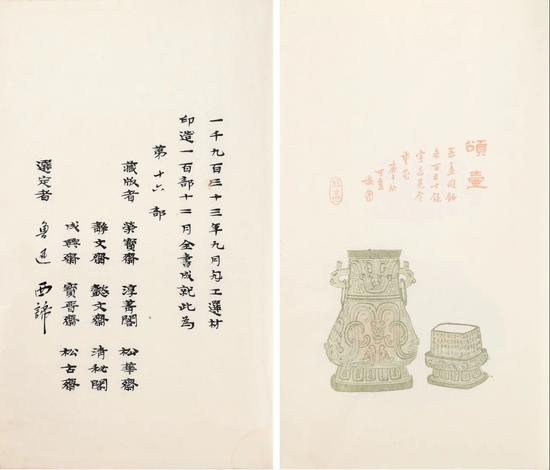 一千九百三十三年九月勾工選材
印造一百部十二月全書成就此為
第十六部
藏版者 榮寶齋 淳菁閣 松華齋
靜文齋 懿文齋 清秘閣
成興齋 寶晉齋 松古齋
選定者 魯迅 西諦
頌壺
各百五十餘